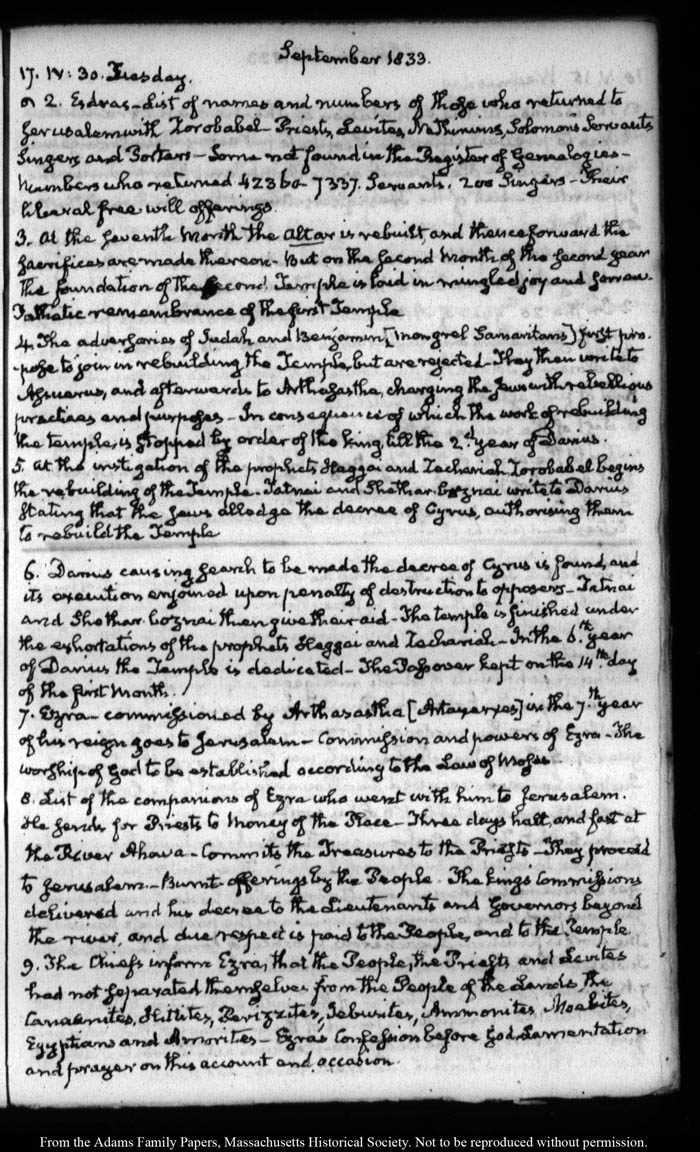 September 1833.
17. IV: 30. Tuesday.
2. Esdras—List of names and numbers of those who returned to
Jerusalem with Zorobabel—Priests, Levites, Nethinims, Solomon's Servants
Singers and Porters—Some not found in the Register of Genealogies—
Numbers who returned 42360—7337. Servants. 200 Singers—Their
liberal free will offerings.
3. At the seventh Month the Altar is rebuilt, and thenceforward the
sacrifices are made thereon—But on the second Month of the second year
the foundation of the second Temple is laid in mingled joy and sorrow—
Pathetic remembrance of the first Temple
4. The adversaries of Judah and Benjamin, [mongrel Samaritans] first pro-
-pose to join in rebuilding the Temple, but are rejected—They then write to
Assuerus, and afterwards to Arthasastha, charging the Jews with rebellious
practices and purposes—In consequence of which the work of rebuilding
the temple, is stopped by order of the king, till the 2.d year of Darius.
5. At the instigation of the prophets Haggai and Zechariah Zorobabel begins
the rebuilding of the Temple—Tatnai and Shethar-boznai write to Darius
stating that the Jews alledge the decree of Cyrus, authorising them
to rebuild the Temple
6. Darius causing search to be made the decree of Cyrus is found, and
its execution enjoined upon penalty of destruction to opposers—Tatnai
and Shethar boznai then give their aid—The temple is finished under
the exhortations of the prophets Haggai and Zechariah—In the 6.th year
of Darius the Temple is dedicated—The Passover kept on the 14.th day
of the first Month.
7. Ezra—commissioned by Arthasastha [Artaxerxes] in the 7.th year
of his reign goes to Jerusalem—Commission and powers of Ezra—The
worship of God to be established according to the Law of Moses
8. List of the companions of Ezra who went with him to Jerusalem.
He sends for Priests to Money of the Place—Three days halt, and fast at
the River Ahava—Commits the Treasures to the Priests—They proceed
to Jerusalem—Burnt-offerings by the People. The kings Commissions
delivered and his decree to the Lieutenants and Governors beyond
the river, and due respect is paid to the People, and to the Temple.
9. The Chiefs inform Ezra, that the People, the Priests and Levites
had not separated themselves from the People of the Lands, the
Canaanites, Hittites, Perizzites, Jebusites, Ammonites, Moabites,
Egyptians and Amorites—Ezra's Confession before God, Lamentation
and prayer on this account and occasion.
From the Adams Family Papers, Massachusetts Historical Society. Not to be reproduced without permission.